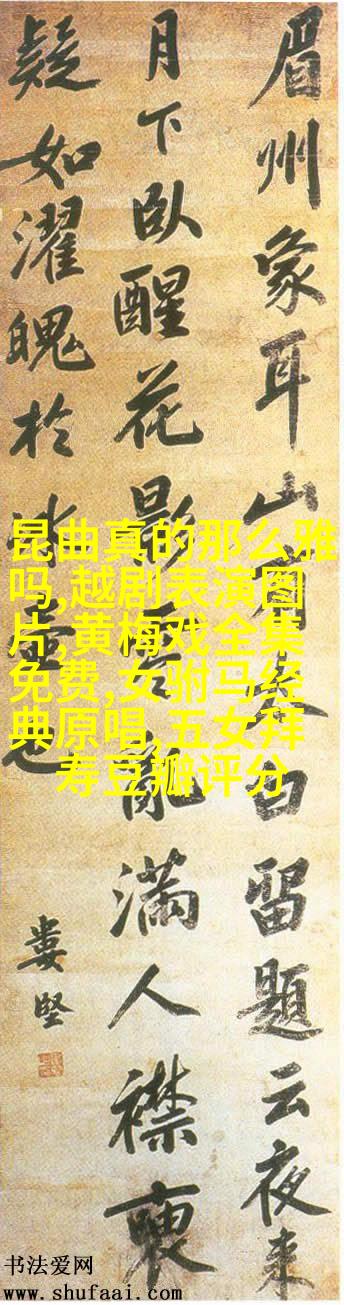 眉州象耳山有白留題云夜来
月下臥醒花影亂滿人襟
疑如濯魄於冰壺也
婁堅
昆曲真的那么雅
吗,越剧表演图
片,黄梅戏全集
免费,女驸马经
典原唱,五女拜
寿豆瓣评分
书法爱网
www.shufaai.com